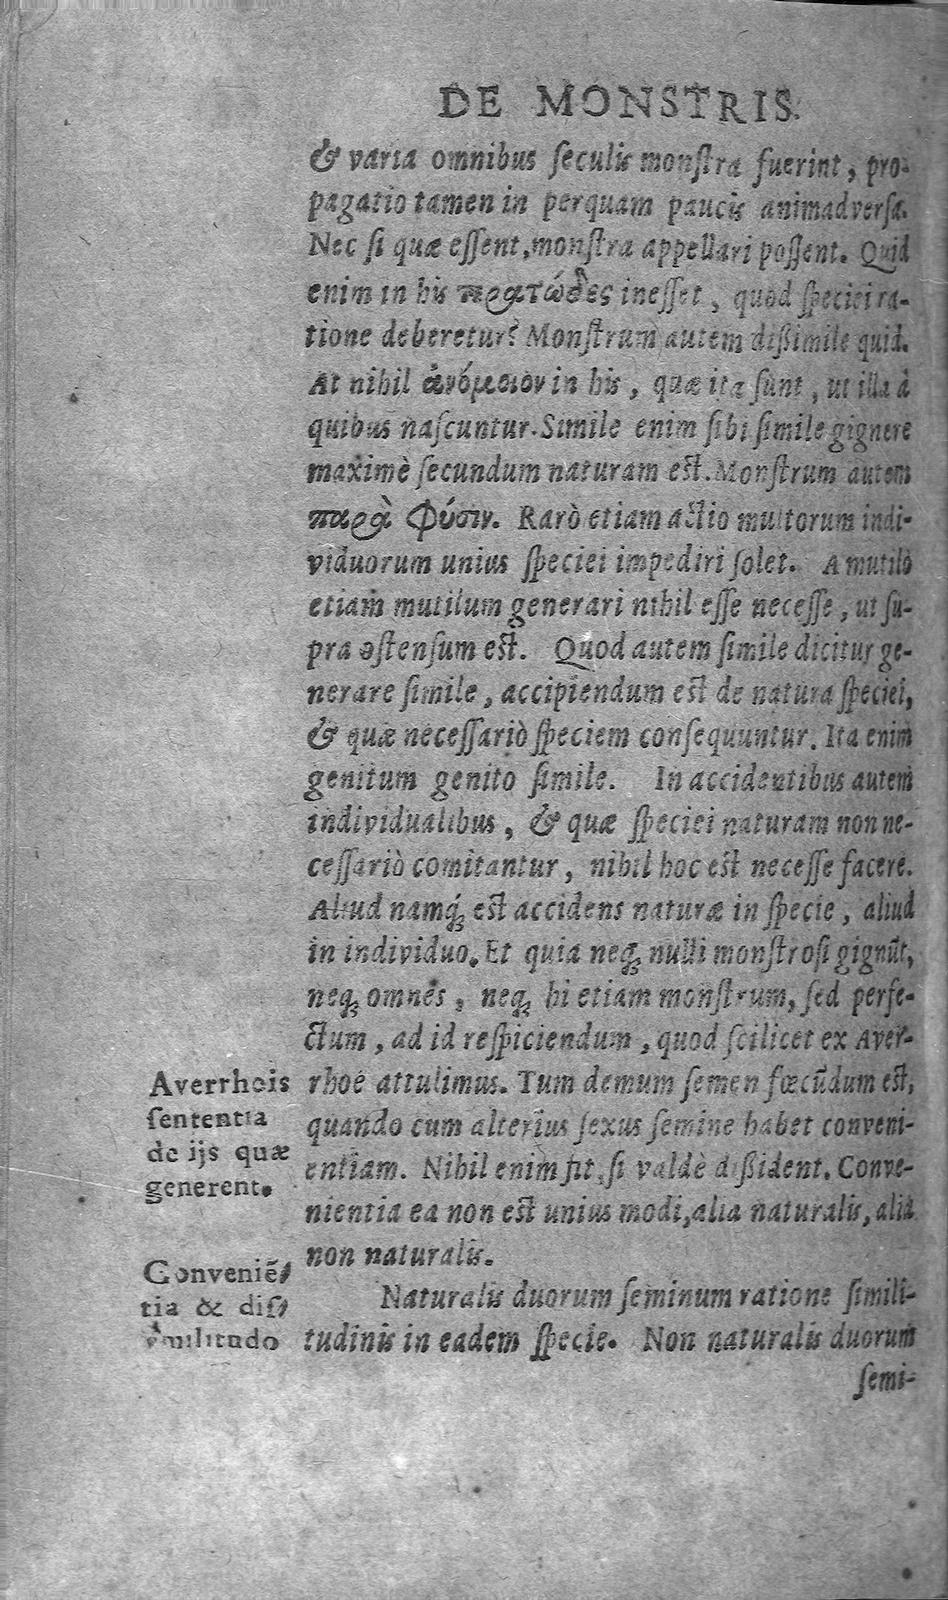 DE MONSTRIS.
& varia omnibus ſeculis monſtra fuerint, pro-
pagatio tamen in perquam paucis animadverſa.
Nec ſi quæ eſſent, monſtra appellari poſſent. Quid
enim in his τερατῶδες ineſſet, quod ſpeciei ra-
tione deberetur? Monſtrum autem dißimile quid.
At nihil ἀνόμοιον in his, quæ ita ſunt, ut illa à
quibus naſcuntur. Simile enim ſibi ſimile gignere
maximè ſecundum naturam eſt. Monſtrum autem
παρὰ Φύσιν. Rarò etiam actio multorum indi-
viduorum unius ſpeciei impediri ſolet. A mutilo
etiam mutilum generari nihil eſſe neceſſe, ut ſu-
pra oſtenſum eſt. Quod autem ſimile dicitur ge-
nerare ſimile, accipiendum eſt de natura ſpeciei,
& quæ neceſſariò ſpeciem conſequuntur. Ita enim
genitum genito ſimile. In accidentibus autem
individualibus, & quæ ſpeciei naturam non ne-
ceſſariò comitantur, nihil hoc eſt neceſſe facere.
Aliud namq́ꝫ eſt accidens naturæ in ſpecie, aliud
in individuo. Et quia neqꝫ nulli monſtroſi gignūt,
neqꝫ omnes, neqꝫ hi etiam monſtrum, ſed perfe-
ctum, ad id reſpiciendum, quod ſcilicet ex Aver-
rhoë attulimus. Tum demum ſemen fœcūdum eſt,
quando cum alterius ſexus ſemine habet conveni-
entiam. Nihil enim fit, ſi valdè dißident. Conve-
nientia ea non eſt unius modi, alia naturalis, alia
non naturalis.
Naturalis duorum ſeminum ratione ſimili-
tudinis in eadem ſpecie. Non naturalis duorum
ſemi-
Averrhois
ſententia
de ijs quæ
generent.
Conveniē-
tia & diſ-
ſimilitudo